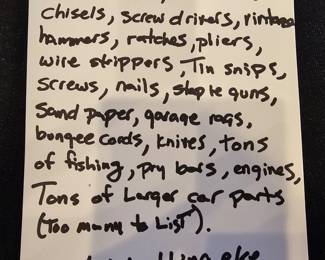 chisels, screw drivers, vintage
hammers, ratches, pliers,
wire strippers, Tin snips,
screws, nails, staple guns,
Sand paper, garage rags,
bungee cords, knives, tons
of fishing, pry bars, engines,
Tons of Larger car parts
(Too many to List).